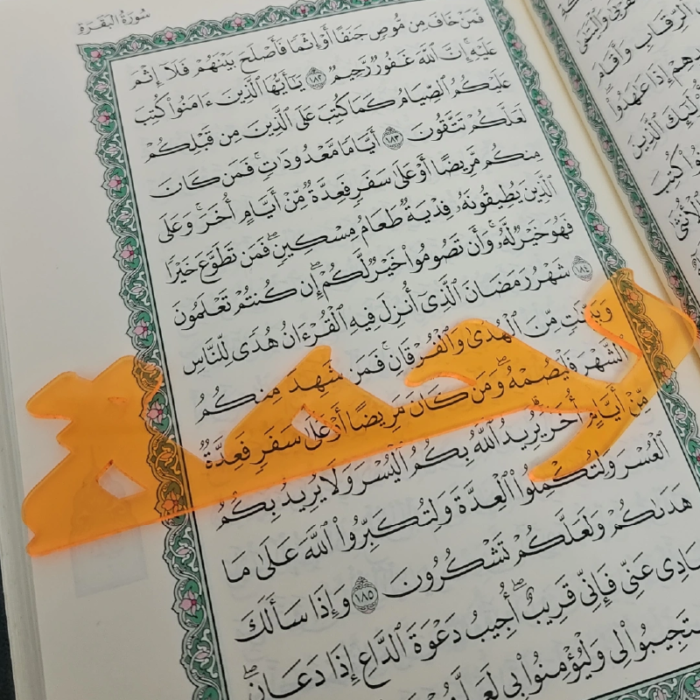 سُورَةُ البَقَرَةِ
فَمَنْ خَافَ مِن مُّوصٍ جَنَفًا أَوْ إِثْمًا فَأَصْلَحَ بَيْنَهُمْ فَلَآ إِثْمَ
عَلَيْهِ إِنَّ ٱللَّهَ غَفُورٌ رَّحِيمٌ ١٨٢ يَٰٓأَيُّهَا ٱلَّذِينَ ءَامَنُوا۟ كُتِبَ
عَلَيْكُمُ ٱلصِّيَامُ كَمَا كُتِبَ عَلَى ٱلَّذِينَ مِن قَبْلِكُمْ
لَعَلَّكُمْ تَتَّقُونَ ١٨٣ أَيَّامًا مَّعْدُودَٰتٍ ۚ فَمَن كَانَ
مِنكُم مَّرِيضًا أَوْ عَلَىٰ سَفَرٍ فَعِدَّةٌ مِّنْ أَيَّامٍ أُخَرَ ۚ وَعَلَى
ٱلَّذِينَ يُطِيقُونَهُۥ فِدْيَةٌ طَعَامُ مِسْكِينٍ ۖ فَمَن تَطَوَّعَ خَيْرًا
فَهُوَ خَيْرٌ لَّهُۥ ۚ وَأَن تَصُومُوا۟ خَيْرٌ لَّكُمْ ۖ إِن كُنتُمْ تَعْلَمُونَ
١٨٤ شَهْرُ رَمَضَانَ ٱلَّذِىٓ أُنزِلَ فِيهِ ٱلْقُرْءَانُ هُدًى لِّلنَّاسِ
وَبَيِّنَٰتٍ مِّنَ ٱلْهُدَىٰ وَٱلْفُرْقَانِ ۚ فَمَن شَهِدَ مِنكُمُ
ٱلشَّهْرَ فَلْيَصُمْهُ ۖ وَمَن كَانَ مَرِيضًا أَوْ عَلَىٰ سَفَرٍ فَعِدَّةٌ
مِّنْ أَيَّامٍ أُخَرَ ۗ يُرِيدُ ٱللَّهُ بِكُمُ ٱلْيُسْرَ وَلَا يُرِيدُ بِكُمُ
ٱلْعُسْرَ وَلِتُكْمِلُوا۟ ٱلْعِدَّةَ وَلِتُكَبِّرُوا۟ ٱللَّهَ عَلَىٰ مَا
هَدَىٰكُمْ وَلَعَلَّكُمْ تَشْكُرُونَ ١٨٥ وَإِذَا سَأَلَكَ
ادِى عَنِّى فَإِنِّى قَرِيبٌ ۖ أُجِيبُ دَعْوَةَ ٱلدَّاعِ إِذَا دَعَانِ ۖ
تَجِيبُوا۟ لِى وَلْيُؤْمِنُوا۟ بِى
رحمة
ٱلرِّقَابِ وَأَقَامَ
هِمْ إِذَا عَٰهَدُوا۟
ٱلَّذِينَ
كُتِبَ